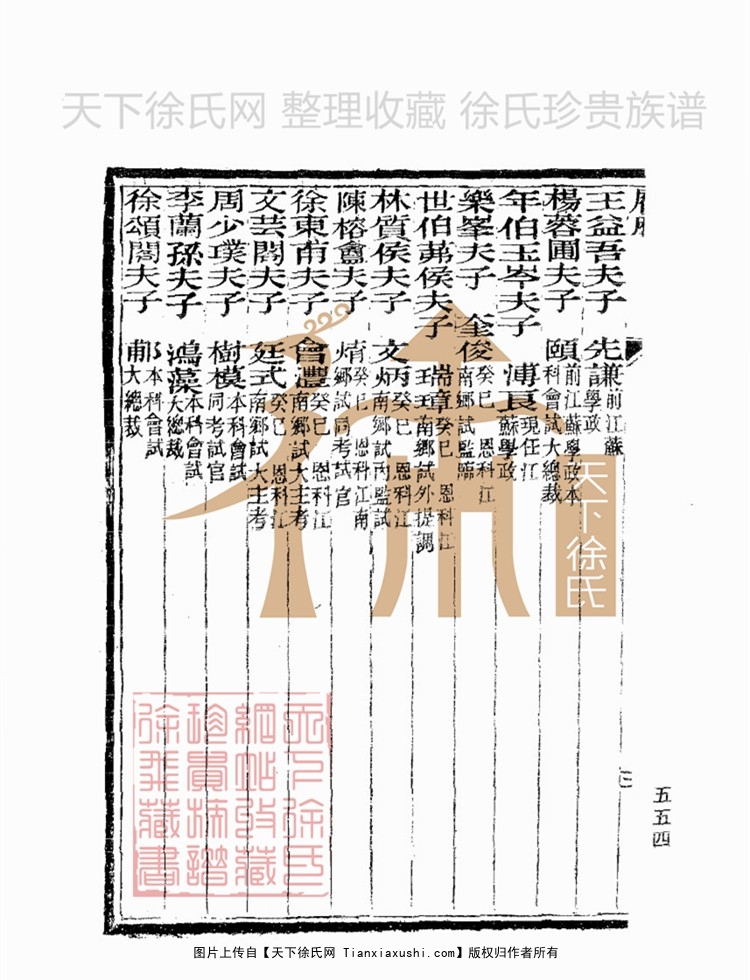 天下徐氏网 整理收藏 徐氏珍贵族谱
王益吾夫子 先謙 前江蘇學政
楊蓉圃夫子 頤 前江蘇學政本科會試大總裁
年伯玉岑夫子 溥良 現任江蘇學政
樂峯夫子 奎俊 癸巳 恩科江南鄉試監臨
世伯茀侯夫子 瑞璋 癸巳 恩科江南鄉試外提調
林質侯夫子 文炳 癸巳 恩科江南鄉試內監試
陳榕龕夫子 癸巳 恩科江南鄉試同考試官
徐東甫夫子 會灃 癸巳 恩科江南鄉試大主考
文芸閣夫子 廷式 癸巳 恩科江南鄉試大主考
周少璞夫子 樹模 本科會試同考試官
李蘭孫夫子 鴻藻 本科會試大總裁
徐頌閣夫子 郙 本科會試大總裁
三
五五四
天下徐氏
天下徐氏
網站收藏
珍貴族譜
徐 藏書
图片上传自【天下徐氏网 Tianxiaxushi.com】版权归作者所有